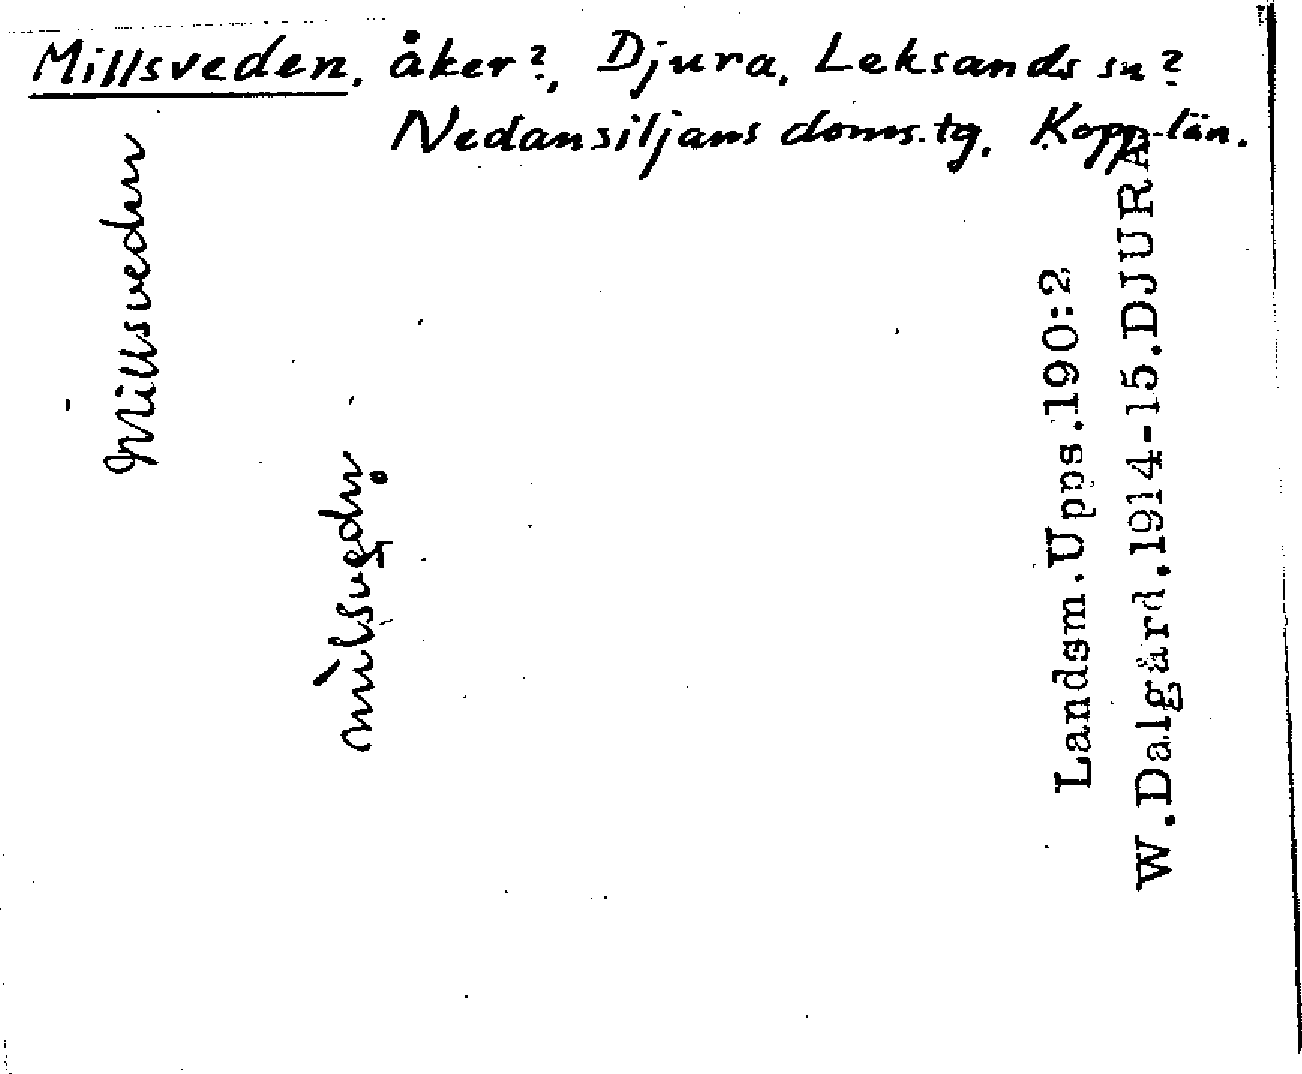 Millsveden, åker?, Djura, Leksands sn?
Nedansiljans doms.tg. Kopp-län.
Millsveden
Landsm.Upps.190:2
W.Dalgård.1914-15.DJURA